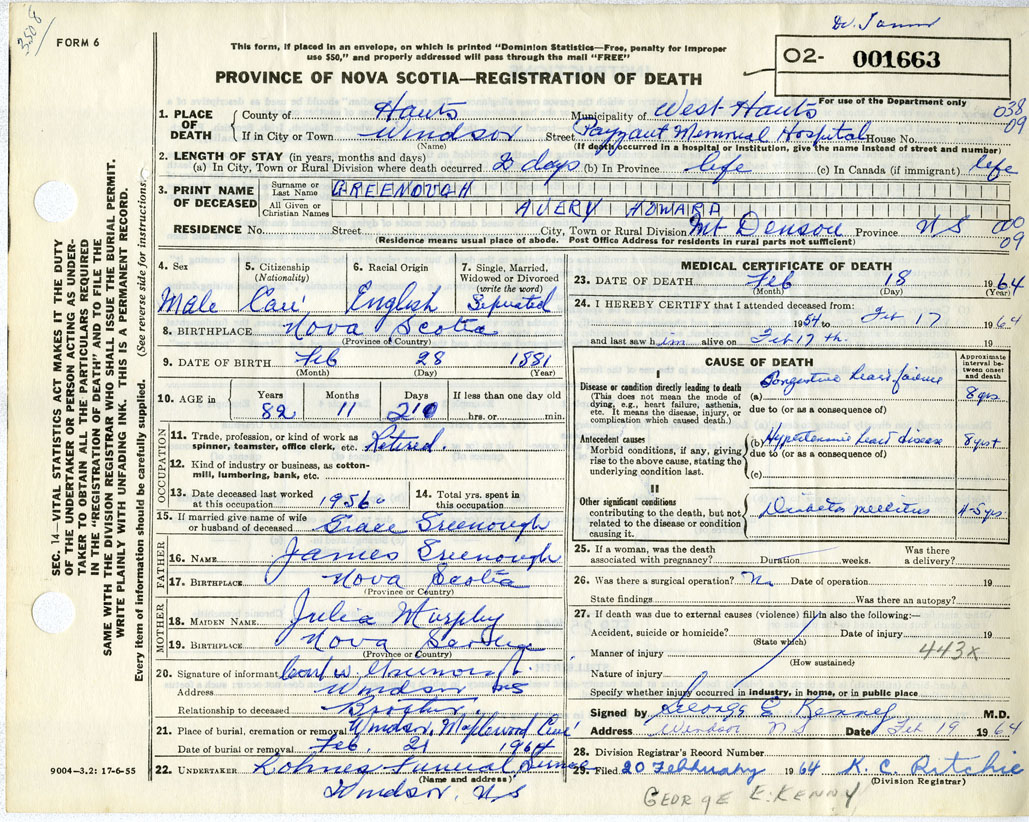 3508
Dr. Jamer
FORM 6
This form, if placed in an envelope, on which is printed "Dominion Statistics—Free, penalty for improper
use $50," and properly addressed will pass through the mail "FREE"
02- 001663
PROVINCE OF NOVA SCOTIA—REGISTRATION OF DEATH
For use of the Department only
1. PLACE OF DEATH County of Hants Municipality of West Hants 038
If in City or Town Windsor Street Payzant Memorial Hospital House No. 09
(Name) (If death occurred in a hospital or institution, give the name instead of street and number)
2. LENGTH OF STAY (in years, months and days)
(a) In City, Town or Rural Division where death occurred 2 days (b) In Province life (c) In Canada (if immigrant) life
3. PRINT NAME OF DECEASED Surname or Last Name GREENOUGH
All Given or Christian Names AVERY HOWARD
RESIDENCE No. Street City, Town or Rural Division Mt Denson Province NS 00
(Residence means usual place of abode. Post Office Address for residents in rural parts not sufficient) 09
4. Sex 5. Citizenship (Nationality) 6. Racial Origin 7. Single, Married, Widowed or Divorced (write the word)
Male Can English Seperated
8. BIRTHPLACE Nova Scotia
(Province or Country)
9. DATE OF BIRTH Feb 28 1881
(Month) (Day) (Year)
10. AGE in Years Months Days If less than one day old
82 11 hrs. or min.
OCCUPATION
11. Trade, profession, or kind of work as spinner, teamster, office clerk, etc. Retired.
12. Kind of industry or business, as cotton-mill, lumbering, bank, etc.
13. Date deceased last worked at this occupation 1956 14. Total yrs. spent in this occupation
15. If married give name of wife or husband of deceased Grace Greenough
FATHER
16. NAME James Greenough
17. BIRTHPLACE Nova Scotia
(Province or Country)
MOTHER
18. MAIDEN NAME Julia Murphy
19. BIRTHPLACE Nova Scotia
(Province or Country)
20. Signature of informant W. Greenough
Address Windsor NS
Relationship to deceased Brother.
21. Place of burial, cremation or removal Windsor, Maplewood Cem'
Date of burial or removal Feb. 21 1964
22. UNDERTAKER Lohnes Funeral Service
(Name and address)
Windsor, N.S
MEDICAL CERTIFICATE OF DEATH
23. DATE OF DEATH Feb 18 1964
(Month) (Day) (Year)
24. I HEREBY CERTIFY that I attended deceased from:
1954 to Feb 17 1964
and last saw him alive on Feb 17 th. 19
CAUSE OF DEATH
Approximate interval between onset and death
Disease or condition directly leading to death
(This does not mean the mode of dying, e.g., heart failure, asthenia, etc. It means the disease, injury, or complication which caused death.)
(a) Congestive heart failure 8 yrs
due to (or as a consequence of)
Antecedent causes
Morbid conditions, if any, giving rise to the above cause, stating the underlying condition last.
(b) Hypertensive heart disease 8 yrs+
due to (or as a consequence of)
(c)
II
Other significant conditions
contributing to the death, but not related to the disease or condition causing it.
Diabetes mellitus 4-5 yrs
25. If a woman, was the death associated with pregnancy? Duration weeks. Was there a delivery?
26. Was there a surgical operation? No Date of operation 19
State findings Was there an autopsy?
27. If death was due to external causes (violence) fill in also the following:—
Accident, suicide or homicide? Date of injury 19
(State which)
Manner of injury 443X
(How sustained)
Nature of injury
Specify whether injury occurred in industry, in home, or in public place
Signed by George E. Kenney M.D.
Address Windsor NS Date Feb 19 1964
28. Division Registrar's Record Number
29. Filed 20 February 1964 K. C. Ritchie
(Division Registrar)
GEORGE E. KENNY
SEC. 14—VITAL STATISTICS ACT MAKES IT THE DUTY
OF THE UNDERTAKER OR PERSON ACTING AS UNDER-
TAKER TO OBTAIN ALL THE PARTICULARS REQUIRED
IN THE "REGISTRATION OF DEATH" AND TO FILE THE
SAME WITH THE DIVISION REGISTRAR WHO SHALL ISSUE THE BURIAL PERMIT.
WRITE PLAINLY WITH UNFADING INK. THIS IS A PERMANENT RECORD.
Every item of information should be carefully supplied. (See reverse side for instructions.)
9004—3.2: 17-6-55